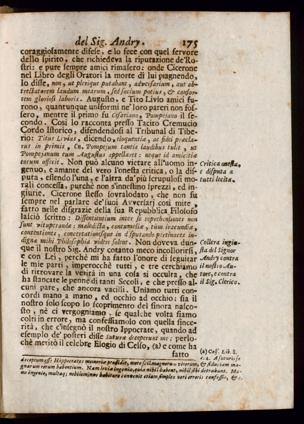 del Sig. Andry. 175
coraggiosamente difese, e lo fece con quel fervore
dello spirito, che richiedeva la riputazione de' Ro-
stri: e pure sempre amici rimasero: onde Cicerone
nel Libro degli Oratori la morte di lui piagnendo,
lo disse, non, ut plerique putabant, adversarium, aut ob-
trectatorem laudum mearum, sed socium potius, & consor-
tem gloriosi laboris. Augusto, e Tito Livio amici fu-
rono, quantunque uniformi ne' loro pareri non fos-
sero, mentre il primo fu Cesariano, Pompejano il se-
condo. Così lo racconta presso Tacito Cremucio
Cordo Istorico, difendendosi al Tribunal di Tibe-
rio: Titus Livius, dicendo, eloquentiæ, ac fidei præcla-
rus in primis, Cn. Pompejum tantis laudibus tulit, ut
Pompejanum eum Augustus appellaret: neque id amicitiæ
eorum offecit. Non può alcuno vietare all'uomo in-
genuo, e amante del vero l'onesta critica, o la dis-
puta, essendo l'una, e l'altra da' più scrupulosi mo-
rali concessa, purchè non s'innestino sprezzi, ed in-
giurie. Cicerone stesso sovralodato, che non fu
sempre nel parlare de' suoi Avversarj così mite,
fatto nelle disgrazie della sua Repubblica Filosofo
lasciò scritto: Dissentientium inter se reprehensiones non
sunt vituperandæ: maledicta, contumeliæ, tum iracundiæ,
contentiones, concertationesque in disputando pertinaces in-
digna mihi Philosophia videri solent. Non doveva dun-
que il nostro Sig. Andry cotanto meco incollorirsi,
e con Lei, perchè mi ha fatto l'onore di seguitar
le mie parti, imperocchè tutti, e tre cerchiamo
di ritrovare la verità in una cosa sì occulta, che
ha stancate le penne di tanti Secoli, e che presso al-
cuni pare, che ancora vacilli. Uniamo tutti con-
cordi mano a mano, ed occhio ad occhio: sia il
nostro solo scopo lo scoprimento del sinora nasco-
sto, nè ci vergogniamo, se qualche volta siamo
colti in errore, ma confessiamolo con quella since-
rità, che c'insegnò il nostro Ippocrate, quando ad
esempio de' posteri disse sutura deceperunt me: perlo-
chè meritò il celebre Elogio di Celso, (a) e come ha
fatto
Critica onesta,
e disputa a
tutti lecita.
Collera ingiu-
sta del Signor
Andry contra
il nostro Au-
tore, e contra
il Sig. Clerico.
(a) Cels. Lib. 8.
c. 4. A suturis se
deceptum esse Hippocrates memoriæ prodidit, more scilicet magnorum virorum, & fiduciam ma-
gnarum rerum habentium. Nam levia ingenia, quia nihil habent, nihil sibi detrahunt. Ma-
gno ingenio, multaque nihilominus habituro convenit etiam simplex veri erroris confessio, & c.